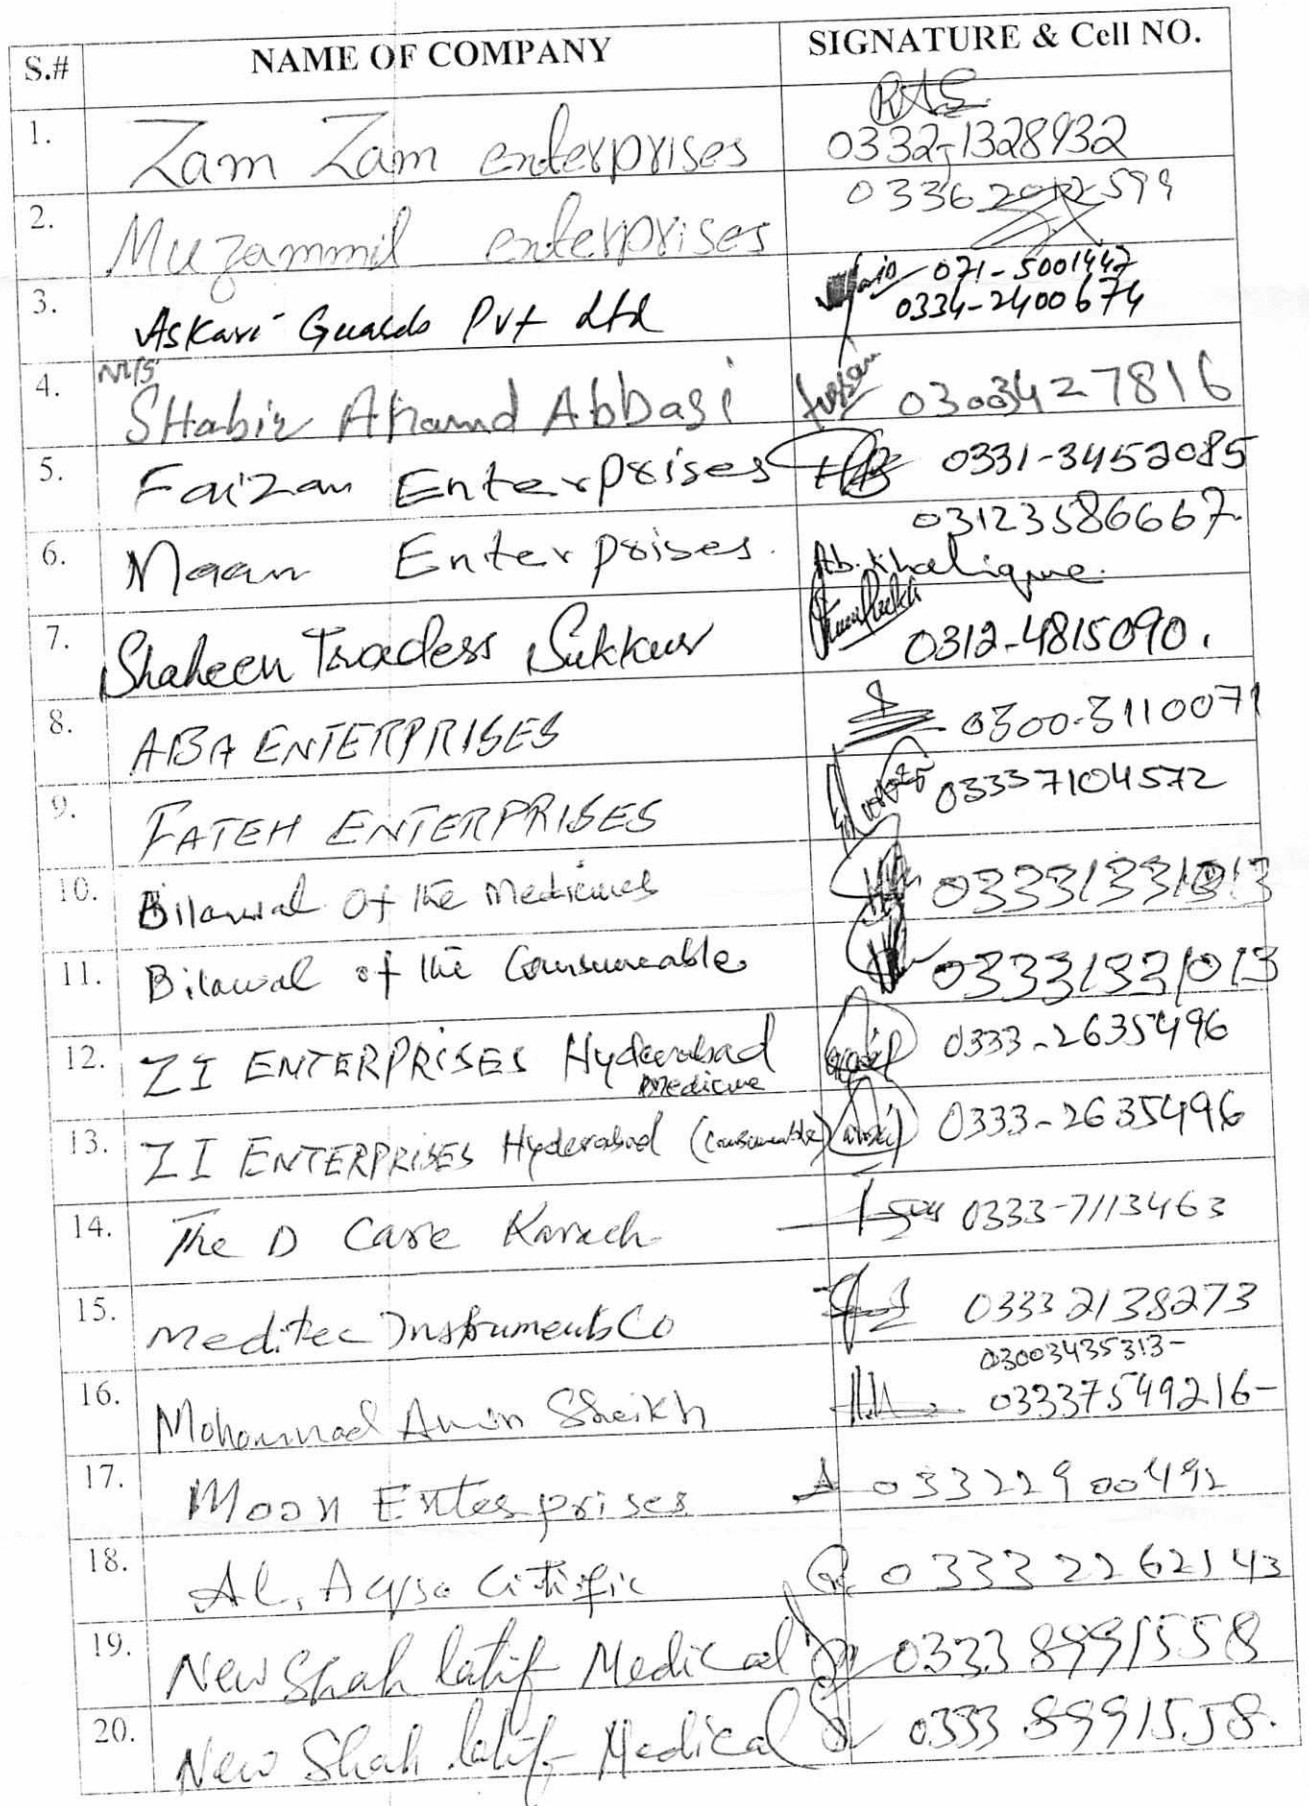 S.# NAME OF COMPANY SIGNATURE & Cell NO.
1. Zam Zam enterprises 0332-1328932
2. Muzammil enterprises 0336 2012599
3. Askari Guards Pvt Ltd 071-5001447
0334-2400674
4. M/S Shabir Ahamd Abbasi 03003427816
5. Faizan Enterprises 0331-3452085
6. Maan Enterprises. 03123586667
Ab. Khalique.
7. Shaheen Traders Sukkur 0312-4815090.
8. ABA ENTERPRISES 0300-3110071
9. FATEH ENTERPRISES 03337104572
10. Bilawal of the Medicines 03331331013
11. Bilawal of the Consumeable 03331331013
12. ZI ENTERPRISES Hyderabad Medicine 0333-2635496
13. ZI ENTERPRISES Hyderabad (Consumeable) 0333-2635496
14. The D Care Karach 0333-7113463
15. Meditec Instruments Co 0333 2138273
16. Mohammad Amin Sheikh 03003435313-
03337549216-
17. Moon Enterprises 03322900492
18. Al, Aqsa Citific 0333 2262143
19. New Shah latif Medical 0333 8991558
20. New Shah latif Medical 0333 8991558.